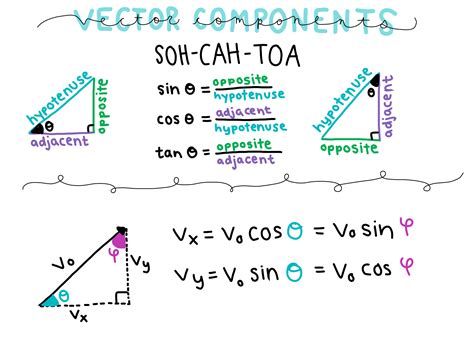 VECTOR COMPONENTS
vector components
SOH-CAH-TOA
hypotenuse
opposite
θ
adjacent
sin θ = opposite/hypotenuse
cos θ = adjacent/hypotenuse
tan θ = opposite/adjacent
hypotenuse
θ
adjacent
opposite
V₀
φ
Vy
θ
Vx
Vx = V₀ cos θ = V₀ sin φ
Vy = V₀ sin θ = V₀ cos φ